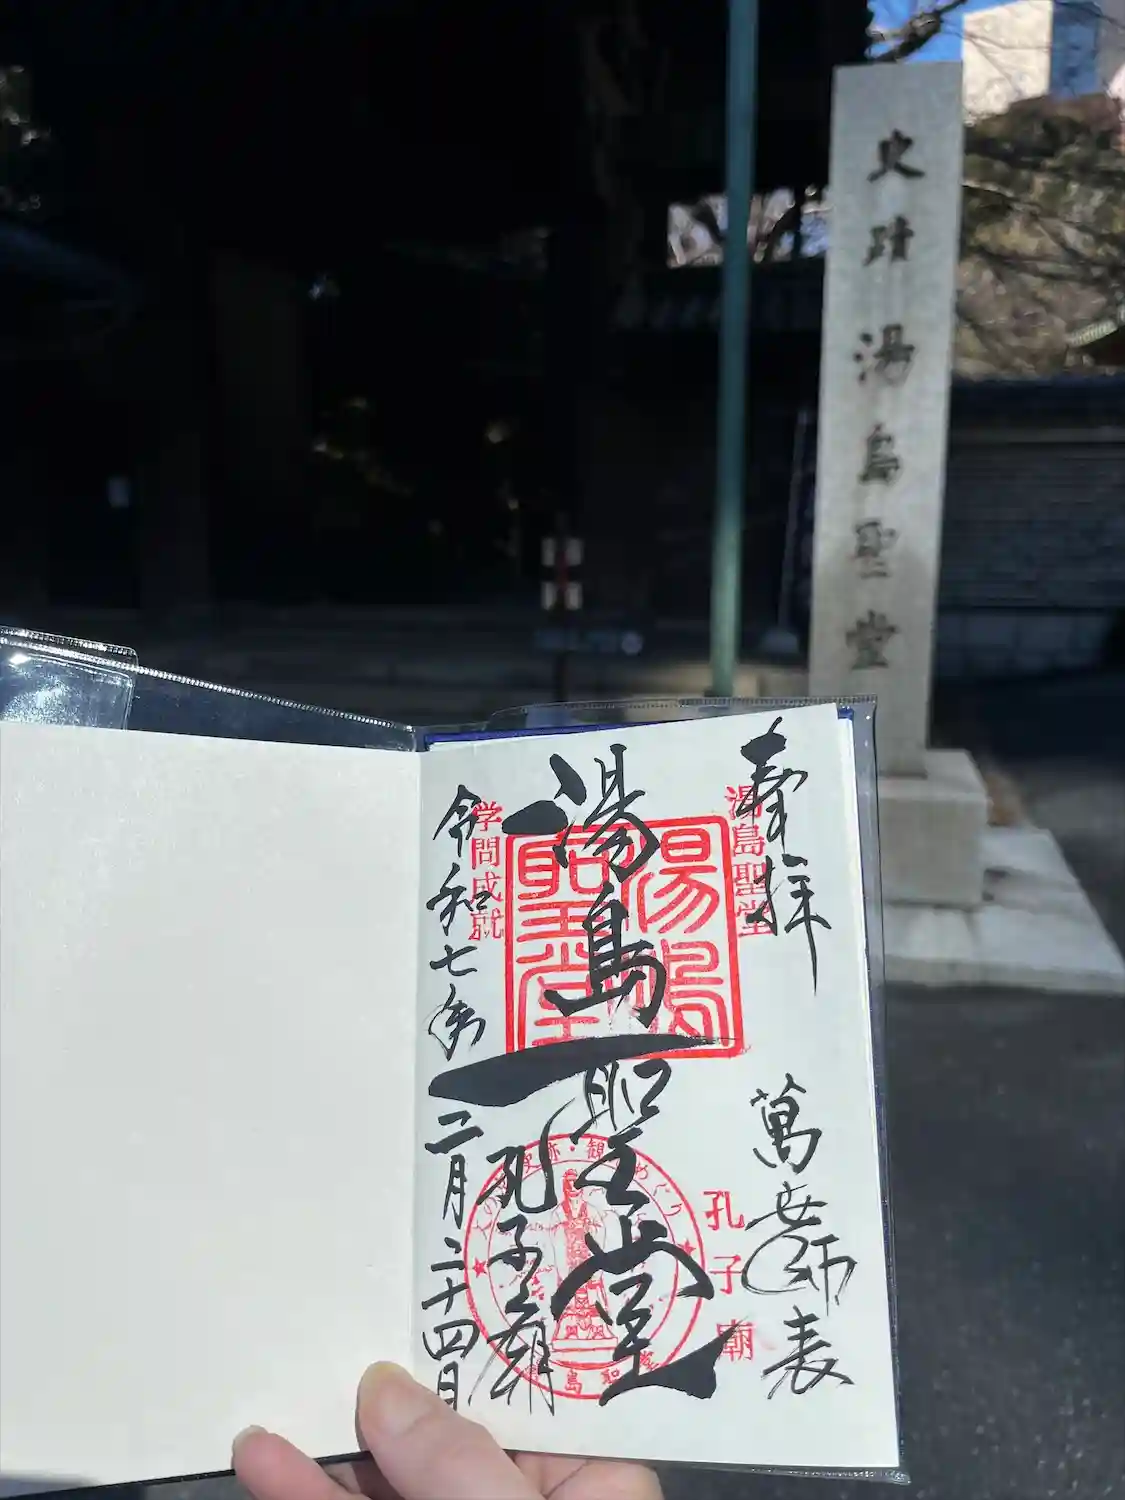 史蹟湯島聖堂
奉拝
湯島聖堂
萬世師表
孔子廟
湯島聖堂
湯島聖堂
孔子廟
学問成就
令和七年二月二十四日